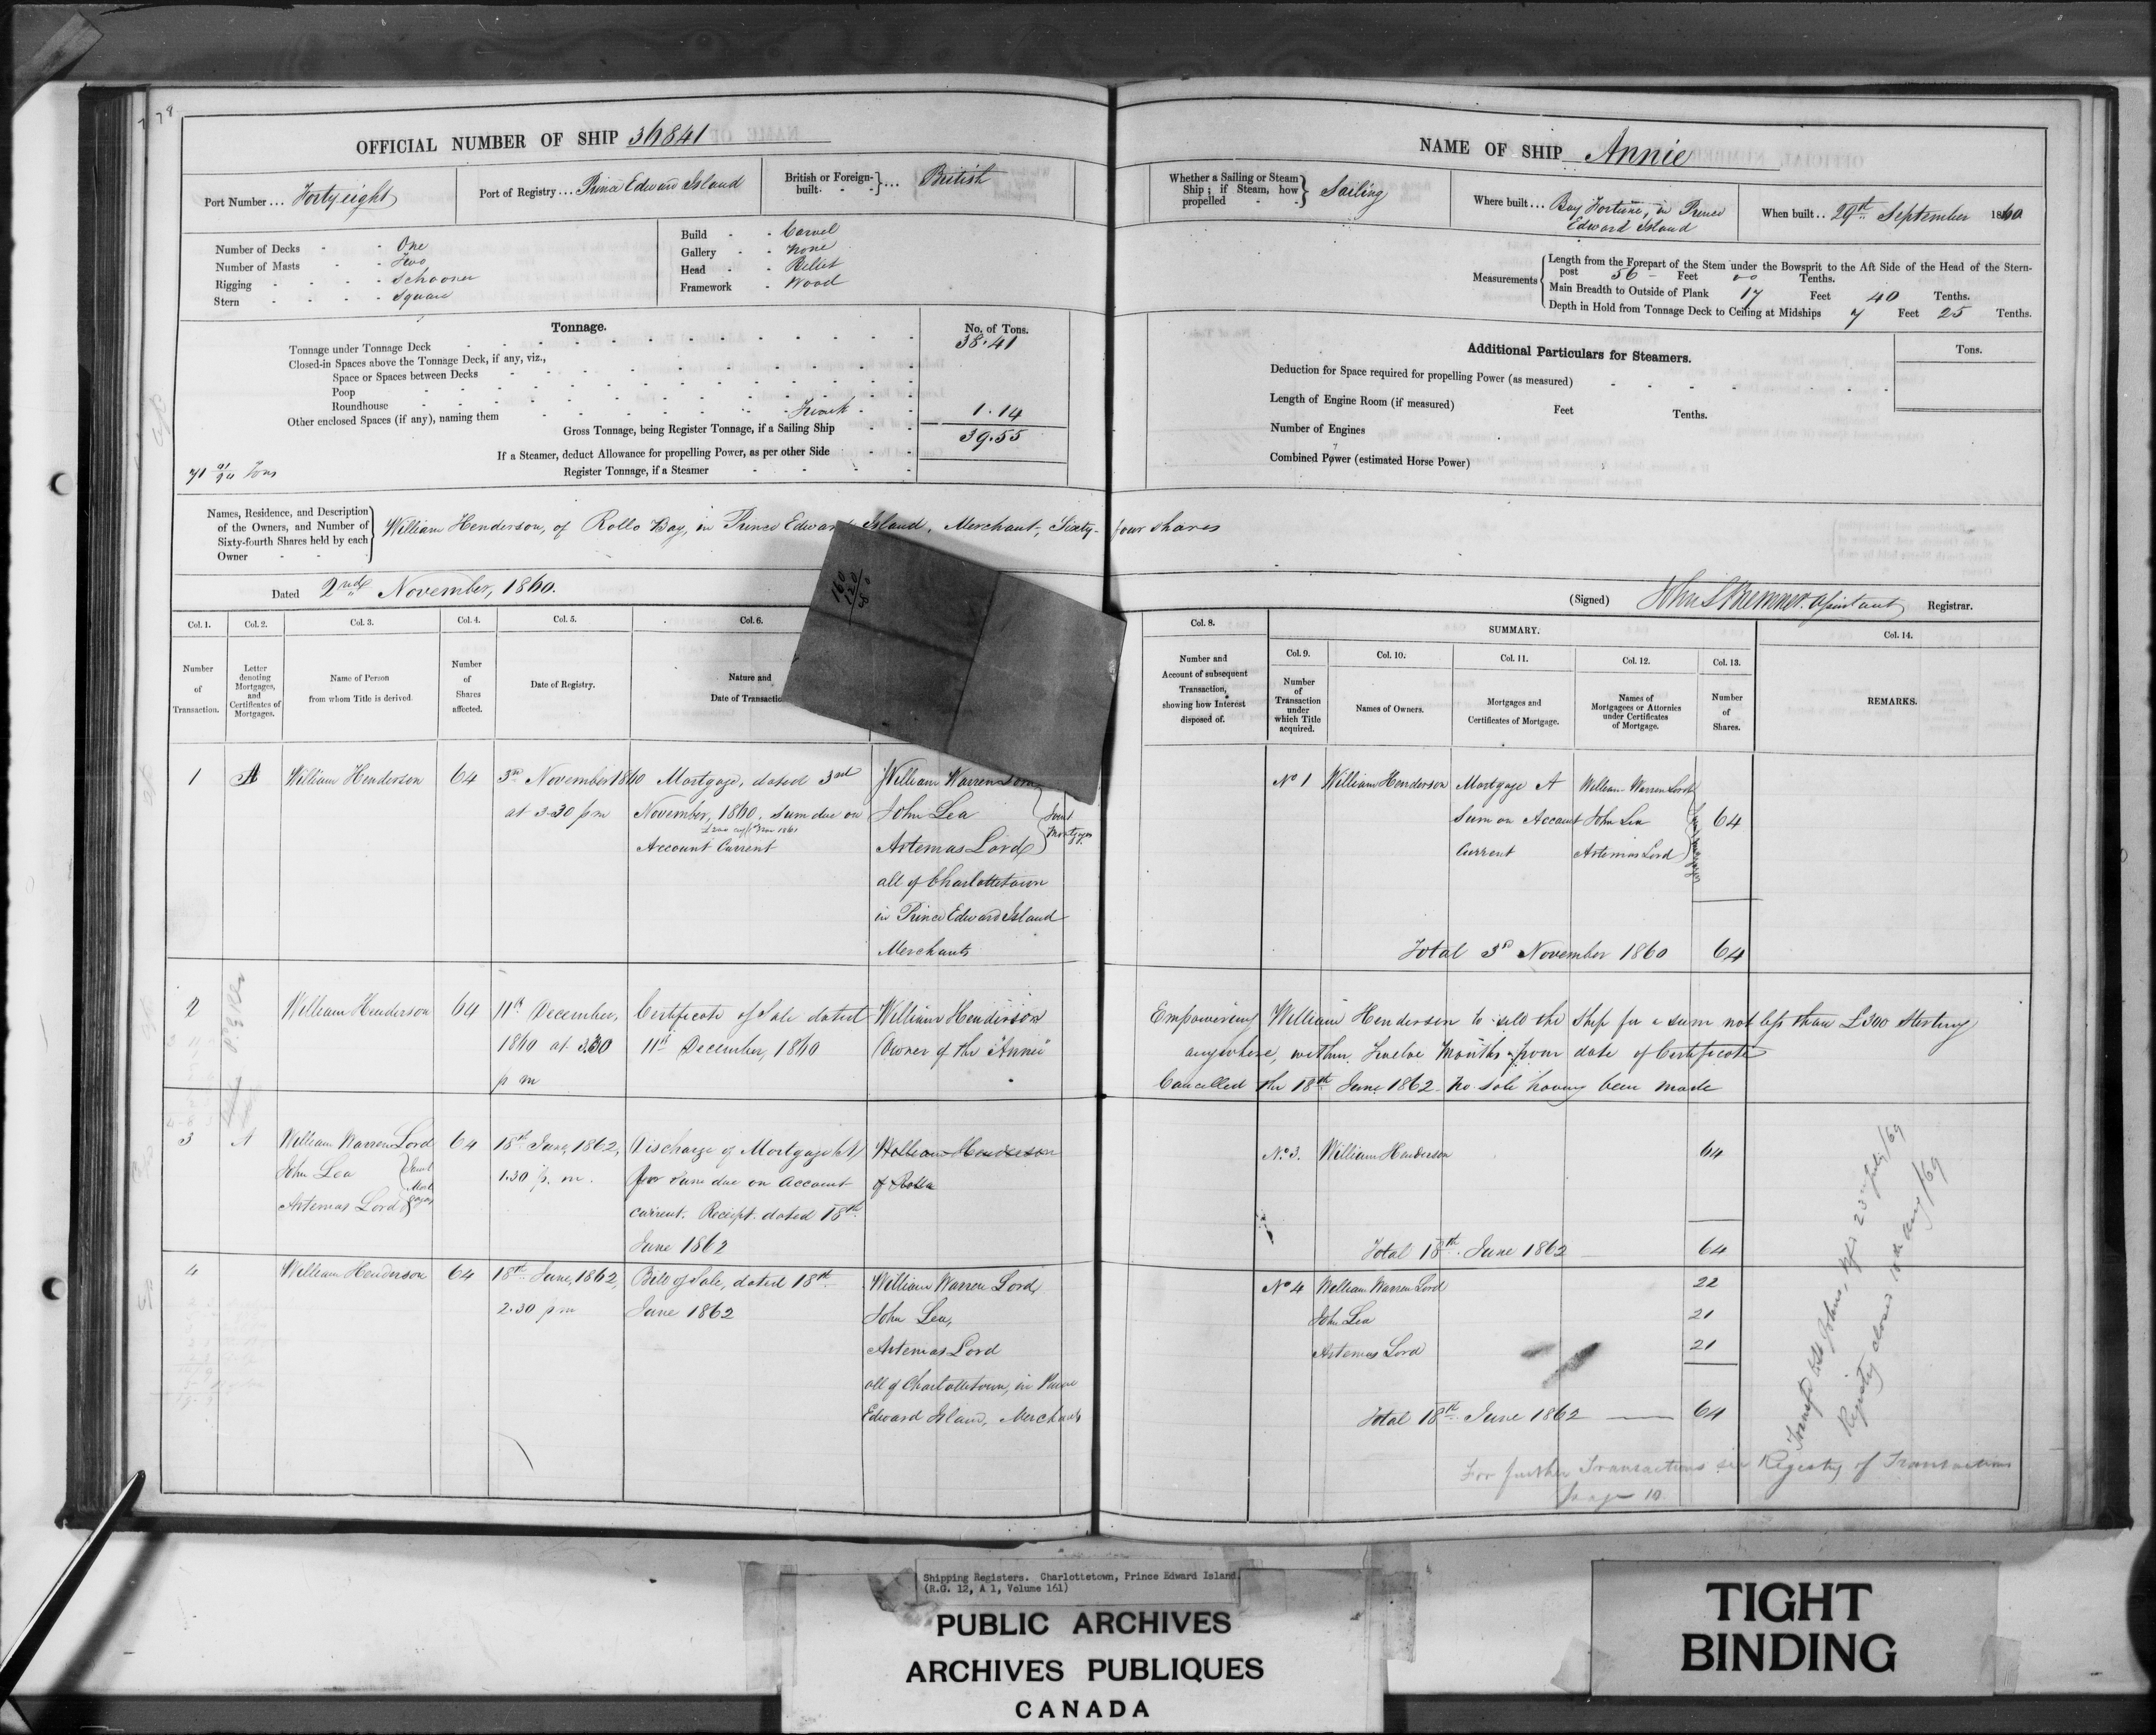 OFFICIAL NUMBER OF SHIP 36841
Port Number ... Forty eight
Port of Registry ... Prince Edward Island
British or Foreign-built. } ... British
Number of Decks - - One
Number of Masts - - Two
Rigging - - - - Schooner
Stern - - - - Square
Build - - Carvel
Gallery - - None
Head - - Billet
Framework - Wood
Tonnage.
No. of Tons.
Tonnage under Tonnage Deck 38.41
Closed-in Spaces above the Tonnage Deck, if any, viz.,
Space or Spaces between Decks
Poop
Roundhouse
Other enclosed Spaces (if any), naming them Trunk 1.14
Gross Tonnage, being Register Tonnage, if a Sailing Ship 39.55
If a Steamer, deduct Allowance for propelling Power, as per other Side
Register Tonnage, if a Steamer
Tons
Names, Residence, and Description of the Owners, and Number of Sixty-fourth Shares held by each Owner
William Henderson, of Rollo Bay, in Prince Edward Island, Merchant, Sixty-four shares
Dated 2nd November, 1860.
160
120
Col. 1. Col. 2. Col. 3. Col. 4. Col. 5. Col. 6.
Number of Transaction.
Letter denoting Mortgages, and Certificates of Mortgages.
Name of Person from whom Title is derived.
Number of Shares affected.
Date of Registry.
Nature and Date of Transactio
1 A William Henderson 64 3rd November 1860 Mortgage, dated 3rd William Warren Lord
at 3.30 pm November, 1860, Sum due on John Lea
Account Current Artemas Lord
Joint Mortgagees
all of Charlottetown
in Prince Edward Island
Merchants
2 William Henderson 64 11th December, Certificate of Sale dated William Henderson
1860 at 3.30 11th December, 1860 Owner of the "Annie"
p m
3 A William Warren Lord 64 18th June, 1862, Discharge of Mortgage (A) William Henderson
John Lea 1.30 p. m. for Sum due on Account of Rollo
Artemas Lord current. Receipt dated 18th
Joint Mortgagees
June 1862
4 William Henderson 64 18th June, 1862, Bill of Sale, dated 18th William Warren Lord,
2.30 pm June 1862 John Lea,
Artemas Lord
all of Charlottetown, in Prince
Edward Island, Merchants
NAME OF SHIP Annie
Whether a Sailing or Steam Ship; if Steam, how propelled } Sailing
Where built ... Bay Fortune, in Prince
Edward Island
When built .. 29th September 1860
Measurements
Length from the Forepart of the Stem under the Bowsprit to the Aft Side of the Head of the Stern-
post 56 - Feet 00 Tenths.
Main Breadth to Outside of Plank 17 Feet 40 Tenths.
Depth in Hold from Tonnage Deck to Ceiling at Midships 7 Feet 25 Tenths.
Additional Particulars for Steamers.
Tons.
Deduction for Space required for propelling Power (as measured)
Length of Engine Room (if measured) Feet Tenths.
Number of Engines
Combined Power (estimated Horse Power)
(Signed) Assistant Registrar.
Col. 8.
SUMMARY.
Col. 14.
Col. 9. Col. 10. Col. 11. Col. 12. Col. 13.
Number and Account of subsequent Transaction, showing how Interest disposed of.
Number of Transaction under which Title acquired.
Names of Owners.
Mortgages and Certificates of Mortgage.
Names of Mortgagees or Attornies under Certificates of Mortgage.
Number of Shares.
REMARKS.
No 1 William Henderson Mortgage A William Warren Lord
Sum on Account John Lea 64
Current Artemas Lord
Total 3rd November 1860 64
Empowering William Henderson to sell the Ship for a sum not less than £300 Sterling
anywhere, within Twelve Months from date of Certificate
Cancelled the 18th June 1862 - No Sale having been made
No. 3. William Henderson 64
Total 18th June 1862 64
No 4 William Warren Lord 22
John Lea 21
Artemas Lord 21
Total 18th June 1862 64
Registry closed
For further Transactions see Registry of Transactions
page 10
Shipping Registers. Charlottetown, Prince Edward Island.
(R.G. 12, A 1, Volume 161)
PUBLIC ARCHIVES
ARCHIVES PUBLIQUES
CANADA
TIGHT
BINDING